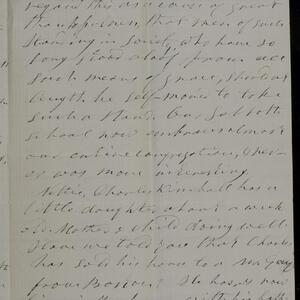 regard this as a cause of great
thankfulness, that men of such
standing in society, who have so
long stood aloof from all
such means of grace, should at
length be self-moved to take
such a stand. Our Sabbath
school now embraces almost
our entire congregation, & never
was more interesting.
Charles Kimball has a
little daughter about a week
old. Mother & child doing well.
Have we told you that Charles
has sold his house to a
from Boston? He has now